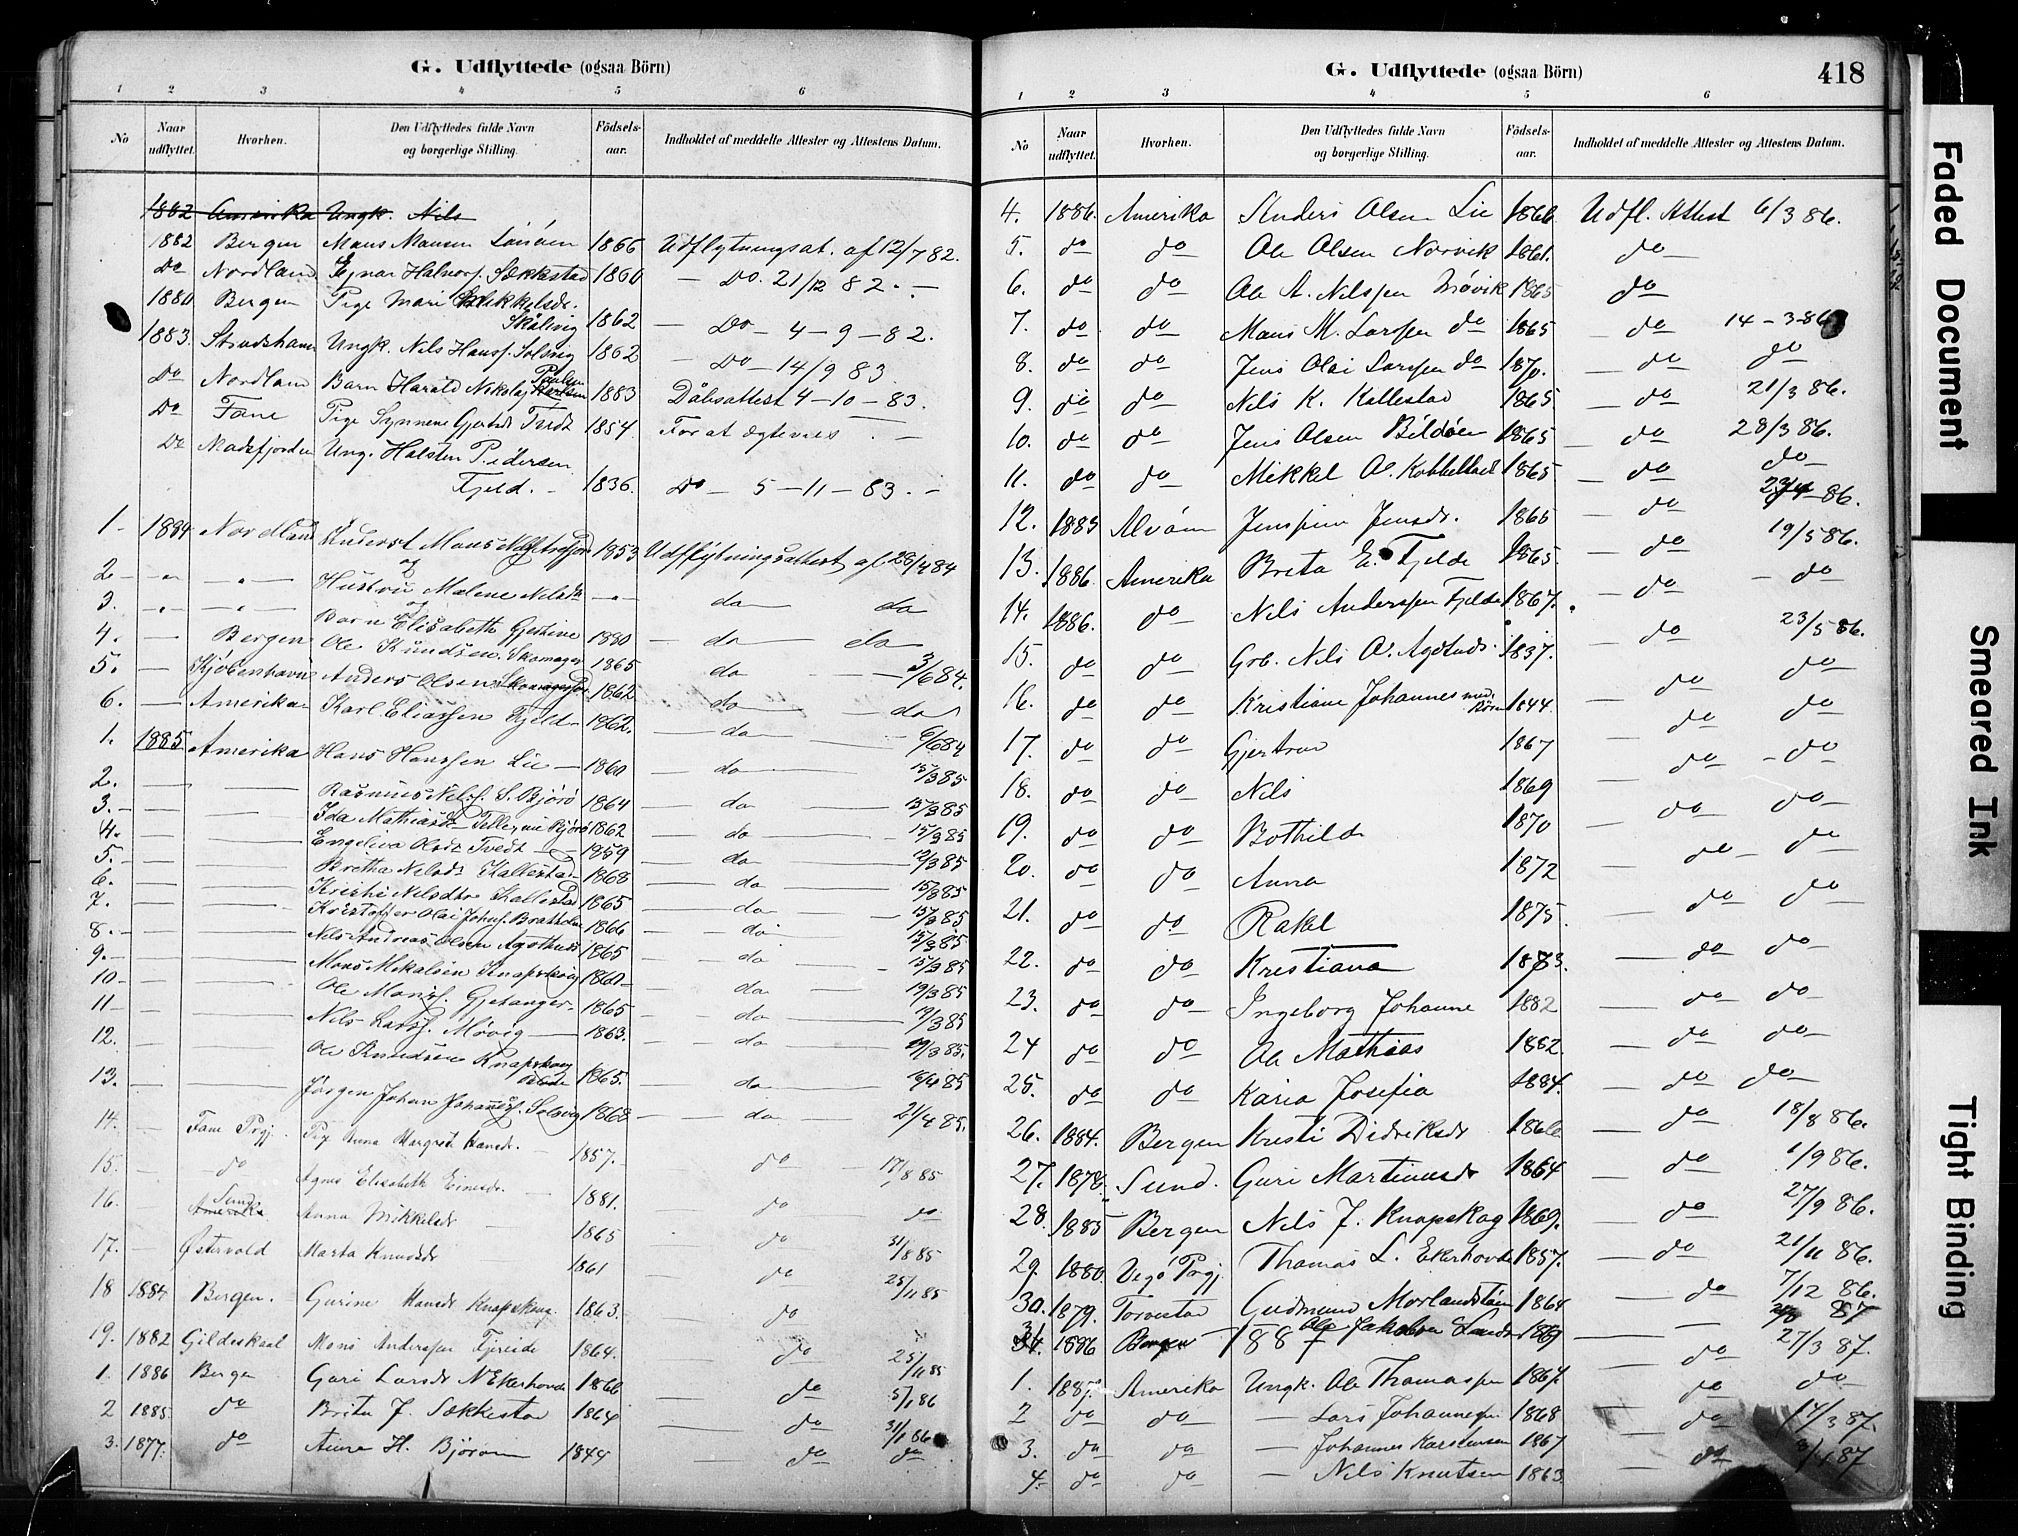 G. Udflyttede (ogsaa Börn)
1 2 3 4 5 6
No Naar udflyttet. Hvorhen. Den Udflyttedes fulde Navn og borgerlige Stilling. Födsels-aar. Indholdet af meddelte Attester og Attestens Datum.
1882 Amerika Ungk. Nils
1882 Bergen Mons Monsen 1866 Udflytningsat. af 12/7 82.
Do Nordland Halvors. Sækkestad 1860 — Do. 21/12 82. —
1880 Bergen Pige Mari Mikkelsdr.
Skålvig 1862 — Do — 4 — 9 — 82.
1883. Ungk. Nils Hans. Solvig 1862 — Do — 14/9 83
Do Nordland Barn Harald Nikolaj Poulsen 1883 Dåbsattest 4 — 10 — 83.
Do Fane Pige Synneve Tvedt 1854. For at ægtevies . —
Do Masfjorden Ung. Halsten Pedersen
Fjeld. — 1836. Do — 5 — 11 — 83. —
1. 1884 Nordland Mons 1853 Udflytningsattest af 28/4 84
og
2. — " — " — Hustru Malene Nilsdr — " — do do
og
3. - " - " - Barn Elisabeth Gjertine 1880 — do — do
4. — Bergen Ole Knudsen. Skomager 1865 do — 3/6 84.
5. — Kjøbenhavn Anders Olsen 1862 do — do
6. — Amerika Karl Eliassen Fjeld 1862. — do — 6/6 84
1. 1885 Amerika Hans Hanssen Lie — 1860 — do — 15/3 85
2. — — Rasmus Nils. S. Bjørø 1864 — do — 15/3 85
3. — — Ida Mathiasdr 1862 — do — 15/3 85
4. — — Engeliva Olsdr Tvedt — 1859 — do — 12/3 85
5. — — Bretha Nilsdr Kallestad 1868 — do — 15/3 85
6. — — Kristi Nilsdtr Kallestad 1865 — do — 15/3 85
7. — — Kristoffer Olai Johns. Bratholm 1866 — do — 15/3 85
8. — — Nils Andreas Olsen Agothnes 1865 — do — 15/3 85
9. — — Mons Mikalsen Knapskog 1860 — do — 19/3 85
10 — — Ole Mons. Gjetanger 1865 — do — 19/3 85
11 — — Nils Lars. Møvig — 1863. — do — 19/3 85.
12. — — Ole Knudsen Knapskog 1865. — do — 16/4 85
13. — — Jørgen Johan Johannes. Solsvig 1868 — do — 21/4 85.
14. — Fane Prgj. Pig Anna Margrete Hansdr. — 1857. — do 17/8 85
15. — do Agnes Elisabeth Einersdr. — 1881. — do do
16. Sund Amerika Anna Mikkelsdr 1865 — do 31/8 85
17. — Østervold Marta Knudsdr 1861 — do 25/11 85
18 1884 Bergen. Gurine Hansdr Knapskog. 1863. — do
19. 1882 Gildeskaal Mons Anderssen Fjereide 1864. — do 25/11 85
1. 1886 Bergen Guri Larsdr N Ekerhovd 1866 — do 5/1 86
2 1885. do Brita J. Sækkestad 1864 — do 31/1 86
3. 1877. do Anna H. Bjørøen 1844 — do do
G. Udflyttede (ogsaa Börn) 418
1 2 3 4 5 6
No Naar udflyttet. Hvorhen. Den Udflyttedes fulde Navn og borgerlige Stilling. Födsels-aar. Indholdet af meddelte Attester og Attestens Datum.
4. 1886. Amerika Anders Olsen Lie 1866 Udfl. Attest 6/3 86.
5. do do Ole Olsen Norvik 1861. do —
6. do do Ole A. Nilssen Møvik 1865 do
7. do do Mons M. Larssen do 1865 — do 14 — 3 86
8. do do Jens Olai Larssen do 1870. — do do
9. do do Nils K. Kallestad 1865 — do 21/3 86.
10. do do Jens Olsen Bildøen 1865 — do 28/3 86.
11. do do Mikkel O. Kobbeltvedt 1865 — do do
12. 1883 Alvøen Jensine Jensdr. 1865 — do 23/4 86.
13. 1886. Amerika Brita E. Fjelde 1865. — do 19/5 86.
14. 1886. do Nils Anderssen Fjelde 1867. — do — do
15. do do Grb. Nils O. Agotnes 1837. — do 23/5 86.
16. do do Kristiane Johannes med Børn 1844. — do do
17. do do Gjertrud 1867 — do do
18. do do Nils 1869 — do — do
19. do do Bothilde 1870 — do do
20. do do Anna 1872 — do — do
21. do do Rakel 1875. — do do
22. do do Kristiana 1873. — do do
23. do do Ingeborg Johanne 1882 — do do
24 do do Ole Mathias 1882. — do do
25. do do Karia Josefia 1884. — do do
26. 1884. Bergen Kristi Didriksdr 1866 — do 18/8 86.
27. 1878. Sund. Guri Martinusdr 1864 — do 1/9 86.
28. 1885 Bergen Nils J. Knapskog 1869. — do 27/9 86.
29. 1880. Vegø Prgj. Thomas L. Ekerhovd 1857. — do 21/11 86.
30. 1879. Torvestad Gudmund Morlandstøen 1864 — do 7/12 86.
31. 1886 Bergen Ole Jakobsen 1869 — — 87
1887
1. 1887. Amerika Ungk. Ole Thomassen 1867. — do 27/3 87.
2 do do — Lars Johannessen 1868 — do do
3. do do — Johannes Karstensen 1867 — do 17/3 87.
4. do do — Nils Knutsen 1863. — do 3/4 87
Faded Document
Smeared Ink
Tight Binding